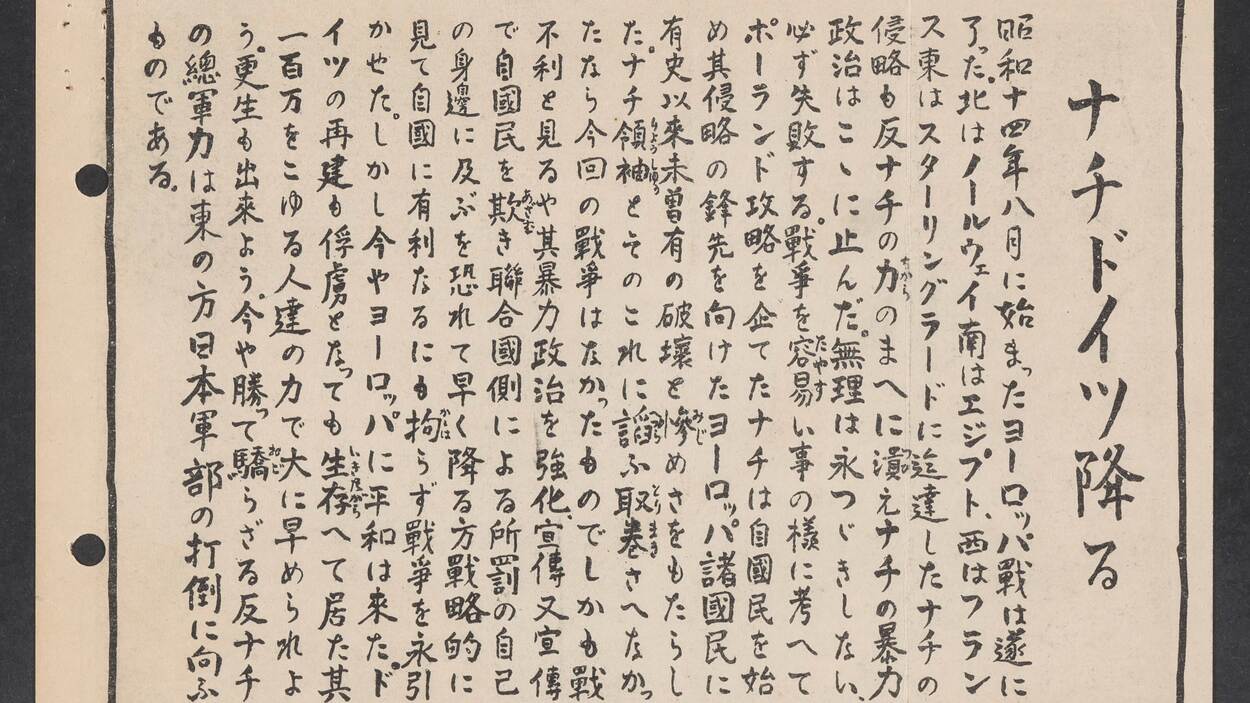 ナチドイツ降る
昭和十四年八月に始まったヨーロッパ戰は遂に
了った。北はノールウェイ南はエジプト、西はフラン
ス東はスターリングラードに迄達したナチの
侵略も反ナチの力のまへに潰えナチの暴力
政治はこゝに止んだ。無理は永つゞきしない、
必ず失敗する。戰爭を容易い事の様に考へて
ポーランド攻略を企てたナチは自國民を始
め其侵略の鋒先を向けたヨーロッパ諸國民に
有史以來未曽有の破壞と慘めさをもたらし
た。ナチ領袖とそのこれに諂ふ取巻さへなかっ
たなら今回の戰爭はなかったものでしかも戰
不利と見るや其暴力政治を強化、宣傳又宣傳
で自國民を欺き聯合國側による所罰の自己
の身邊に及ぶを恐れて早く降る方戰略的に
見て自國に有利なるにも拘らず戰爭を永引
かせた。しかし今やヨーロッパに平和は來た。ド
イツの再建も俘虜となっても生存へて居た其
一百万をこゆる人達の力で大に早められよ
う。更生も出來よう。今や勝って驕らざる反ナチ
の總軍力は東の方日本軍部の打倒に向ふ
ものである。